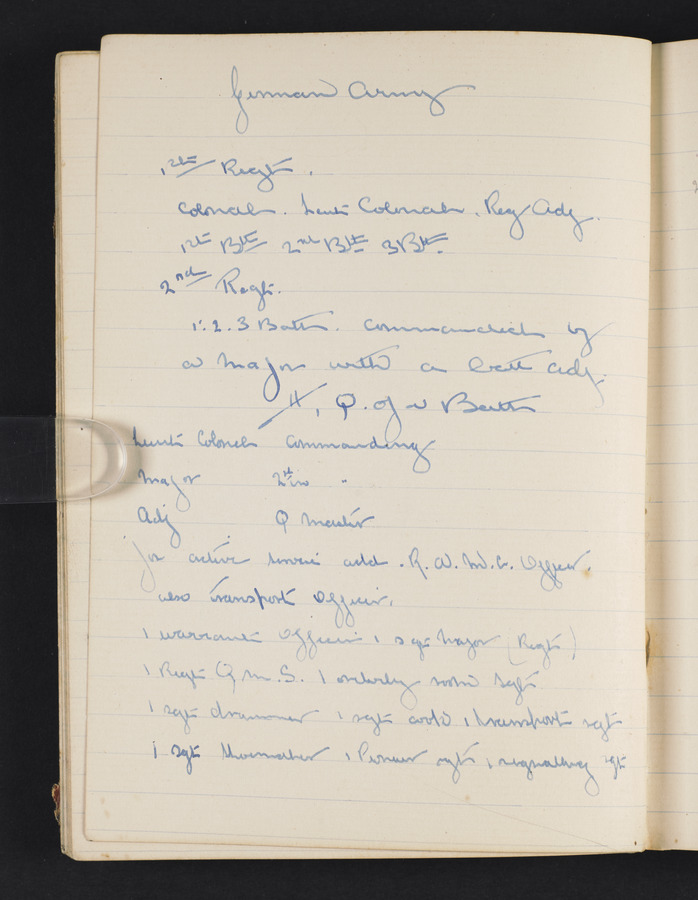 German Army
1st Regt.
Colonel. Lieut Colonel. Reg Adj.
1st Btt 2nd Btt 3 Btt.
2nd Regt.
1. 2. 3 Batt. Commanded by
a Major with a Batt Adj.
H, Q. of a Batt
Lieut Colonel Commanding
Major 2nd in "
Adj Q Master
for active service add. R. A. M. C. Officer.
also Transport Officer.
1 warrant Officer 1 Sgt Major (Regt)
1 Regt Q. M. S. 1 orderly room Sgt
1 sgt drummer 1 sgt cook 1 transport sgt
1 Sgt Shoemaker 1 Pioneer sgt 1 signalling sgt